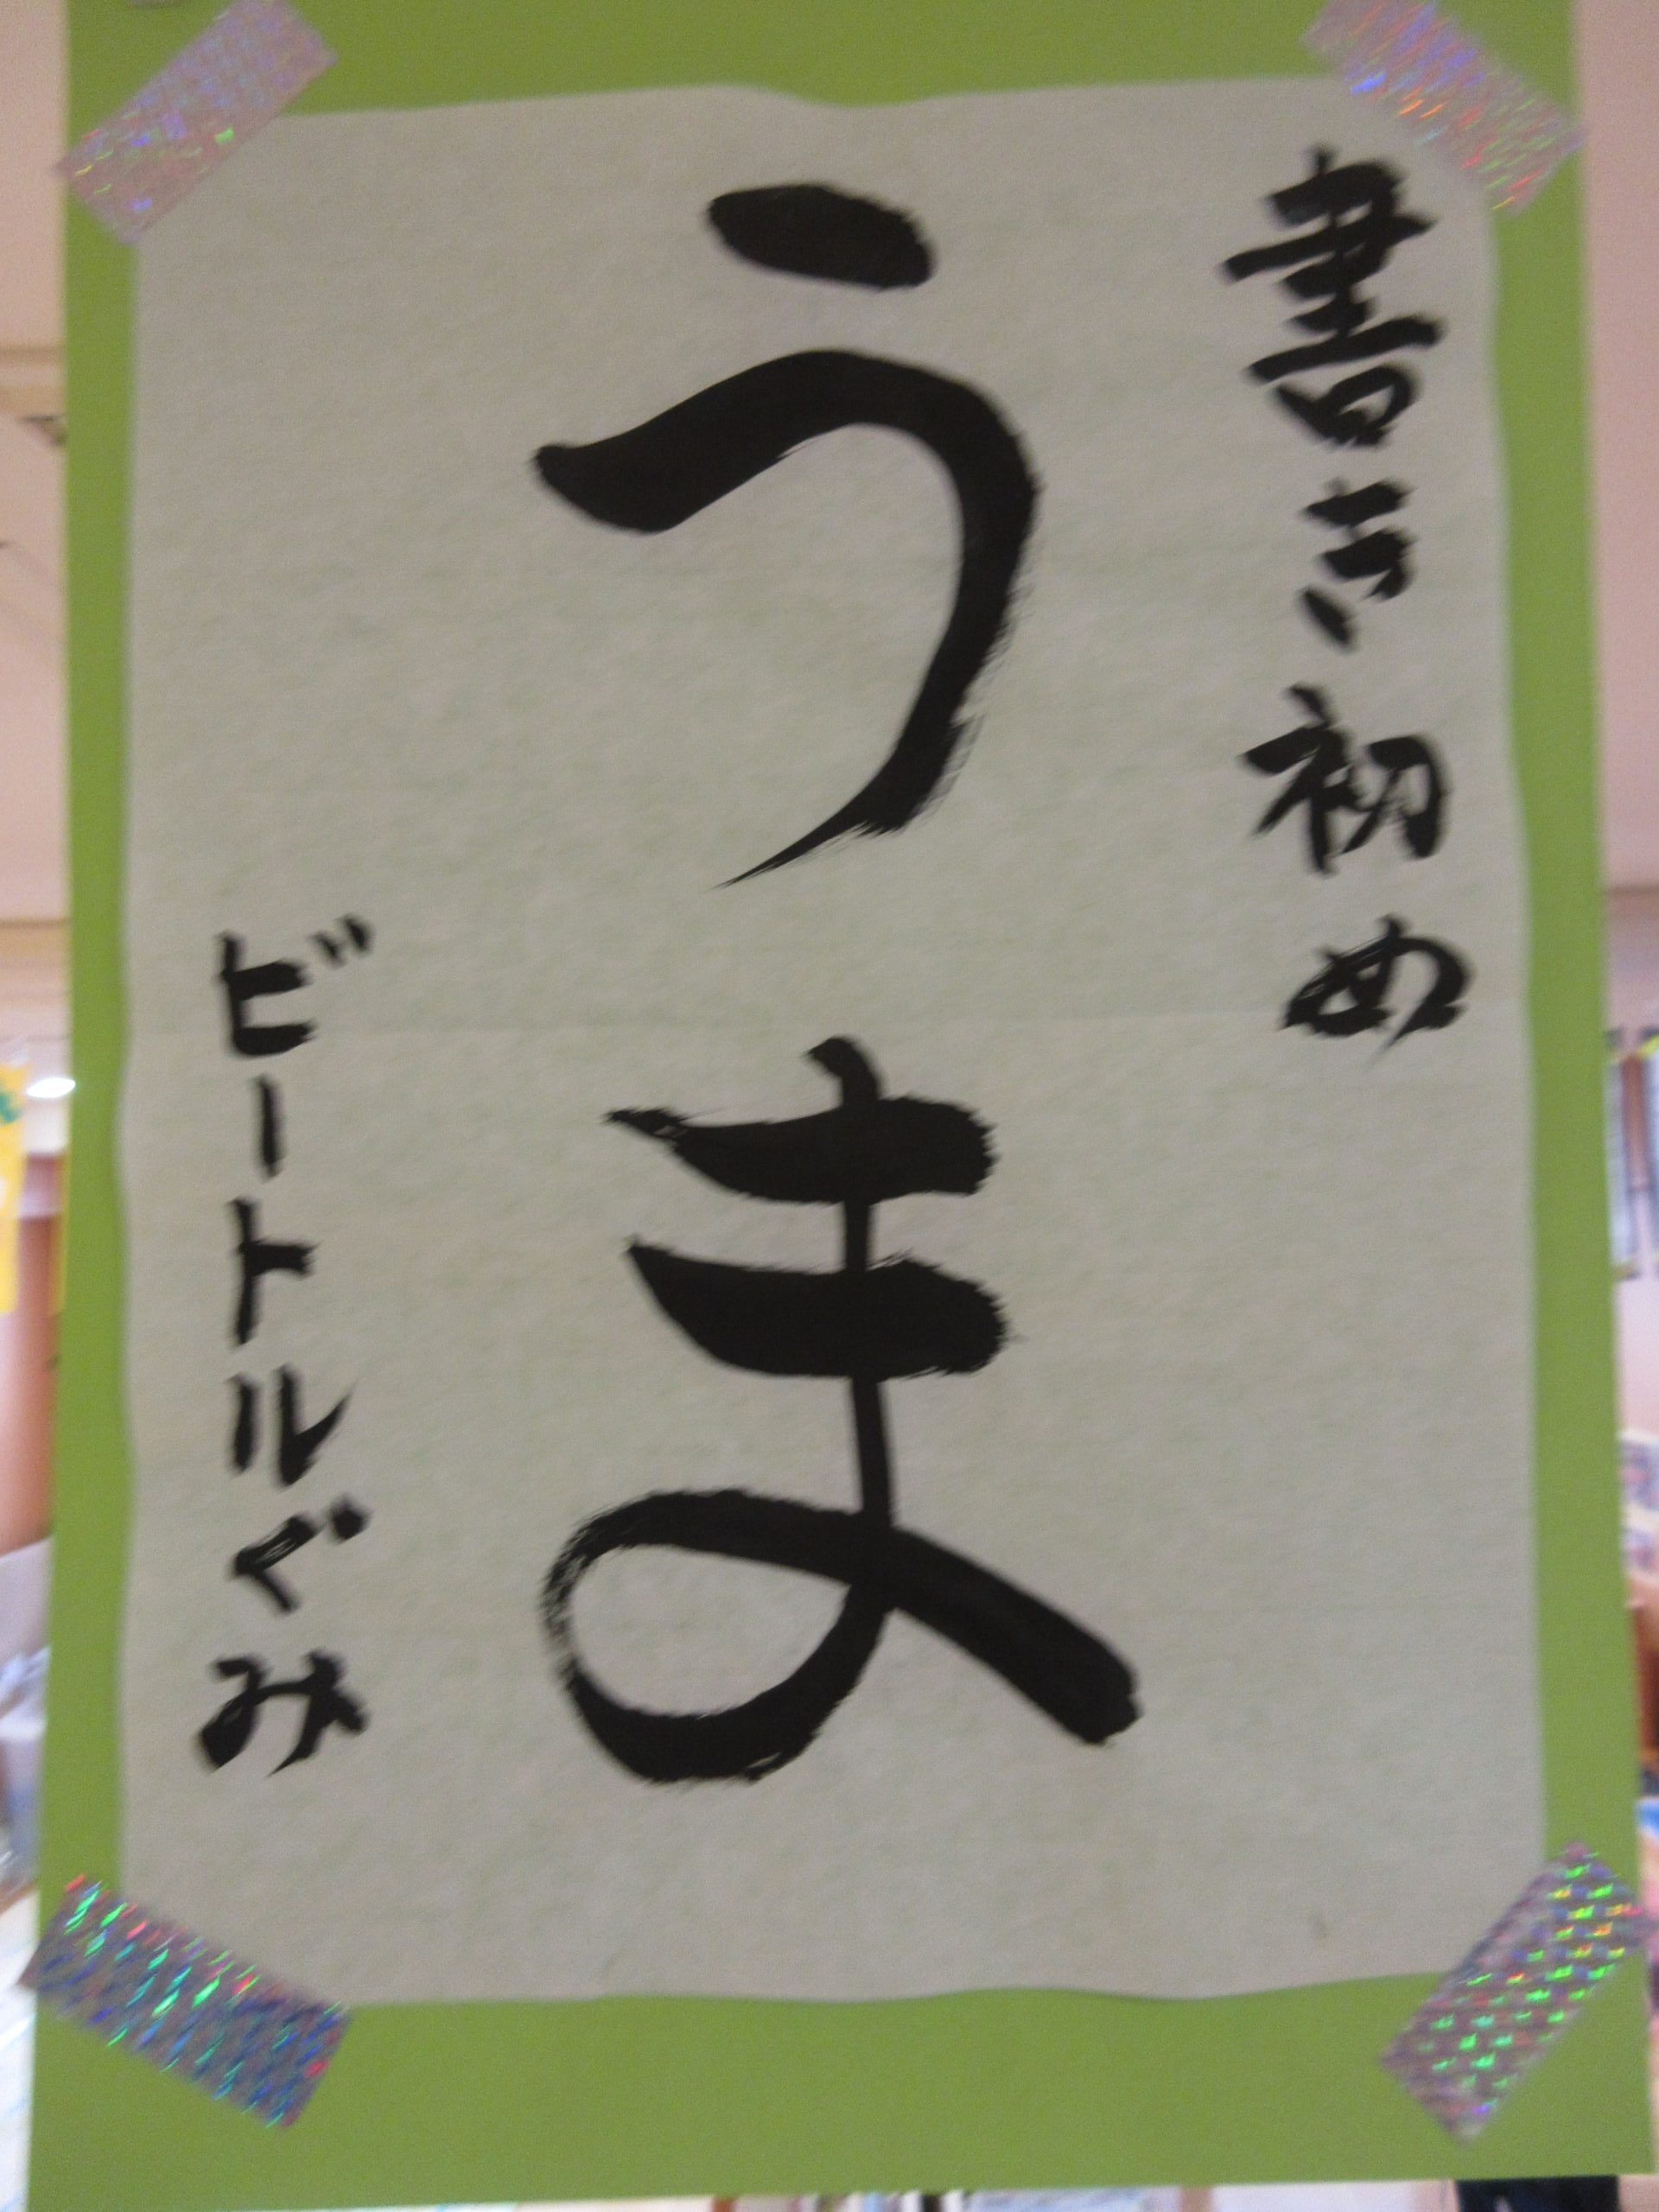 書き初め
うま
ビートルぐみ